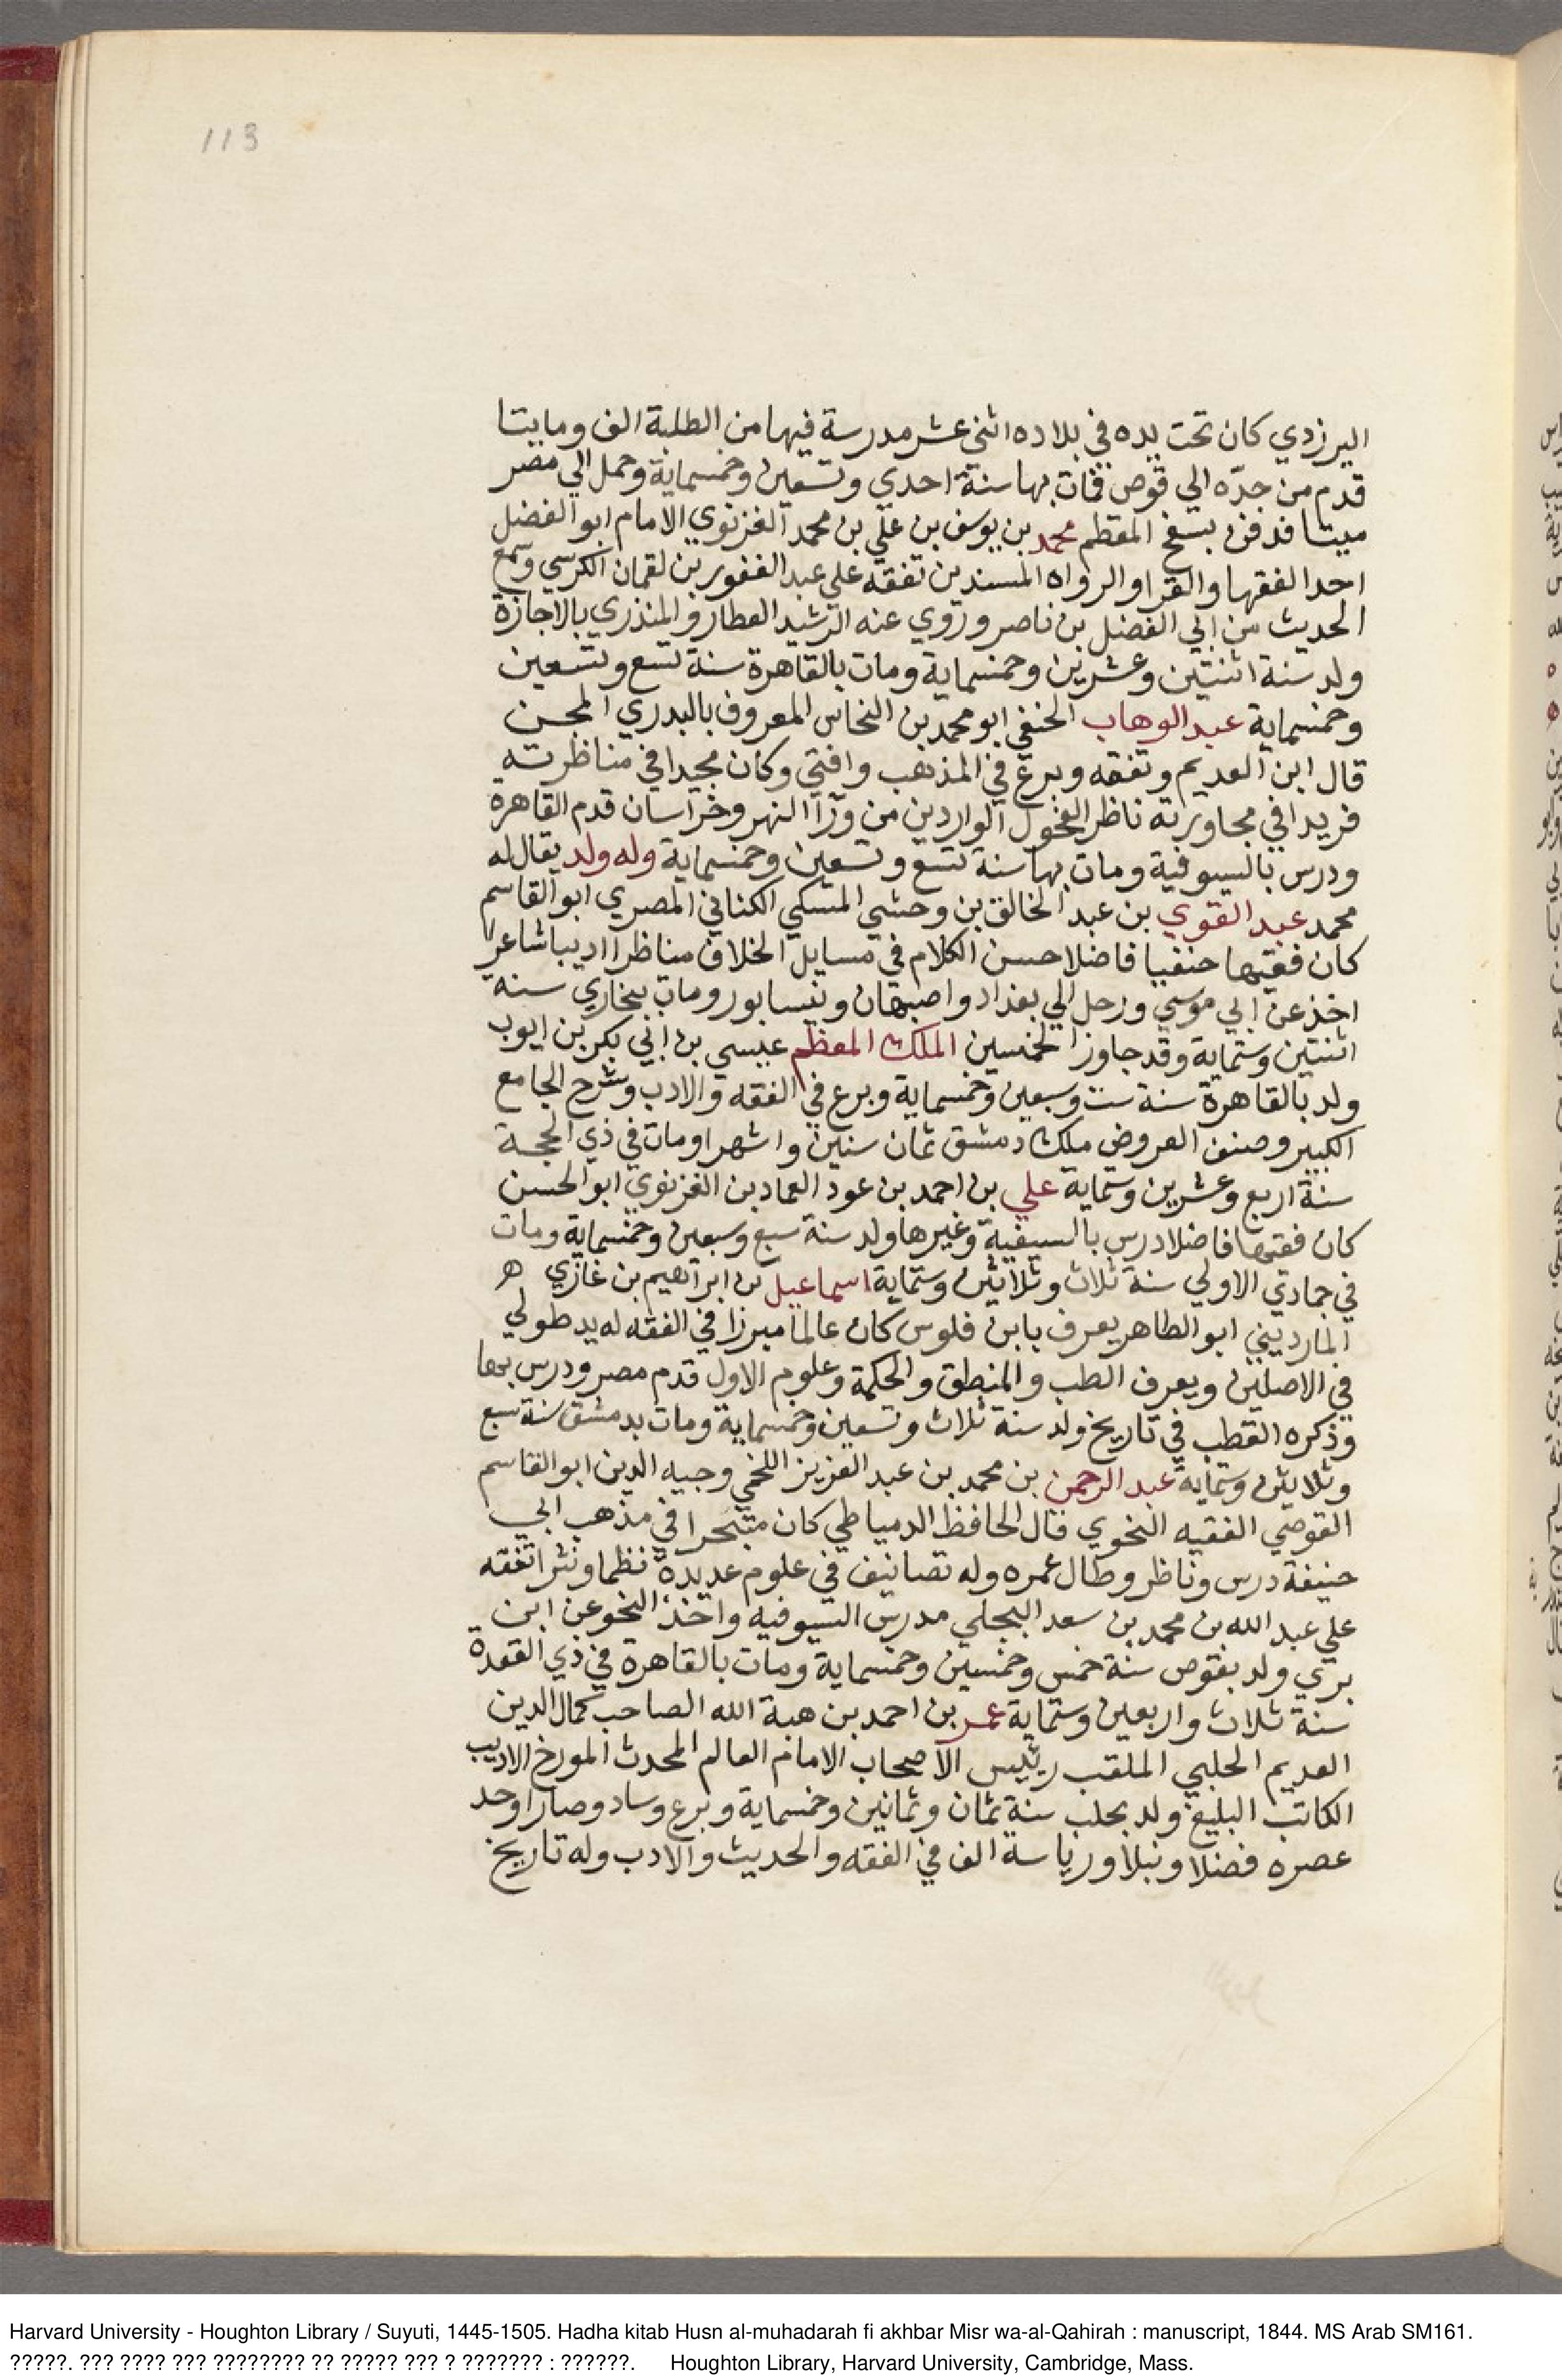 113
اليرزدي كان تحت يده في بلاده اثني عشر مدرسة فيها من الطلبة الف ومايتا
قدم من جدّه الي قوص فمات بها سنة احدي وتسعين وخمسماية وحمل الي مصر
ميتا فدفن بسفح المقطم محمد بن يوسف بن علي بن محمد الغزنوي الامام ابو الفضل
احد الفقها والقرا والرواه المسندين تفقه علي عبد الغفور بن لقمان الكرسي وسمع
الحديث من ابي الفضل بن ناصر وروي عنه الرشيد العطار والمنذري بالاجازة
ولد سنة اثنتين وعشرين وخمسماية ومات بالقاهرة سنة تسع وتسعين
وخمسماية عبد الوهاب الحنفي ابو محمد بن النحاس المعروف بالبدري المجن
قال ابن العديم وتفقه وبرع في المذهب وافتي وكان مجيدا في مناظرته
فريدا في مجاورته ناظر الفحول الواردين من ورآ النهر وخراسان قدم القاهرة
ودرس بالسيوفية ومات بها سنة تسع وتسعين وخمسماية وله ولد يقال له
محمد عبد القوي بن عبد الخالق بن وحشي المسكي الكناني المصري ابو القاسم
كان فقيها حنفيا فاضلا حسن الكلام في مسايل الخلاف مناظرا اديبا شاعرا
اخذ عن ابي موسي ورحل الي بغداد واصبهان ونيسابور ومات ببخاري سنة
اثنتين وستماية وقد جاوز الخمسين الملك المعظم عيسي بن ابي بكر بن ايوب
ولد بالقاهرة سنة ست وسبعين وخمسماية وبرع في الفقه والادب وشرح الجامع
الكبير وصنف العروض ملك دمشق ثمان سنين واشهرا ومات في ذي الحجة
سنة اربع وعشرين وستماية علي بن احمد بن عود العماد بن الغزنوي ابو الحسن
كان فقيها فاضلا درس بالسيفية وغيرها ولد سنة سبع وسبعين وخمسماية ومات
في جمادي الاولي سنة ثلاث وثلاثين وستماية اسماعيل بن ابراهيم بن غازي ه
المارديني ابو الطاهر يعرف بابن فلوس كان عالما مبرزا في الفقه له يد طولي
في الاصلين ويعرف الطب والمنطق والحكمة وعلوم الاول قدم مصر ودرس بها
وذكره القطب في تاريخ ولد سنة ثلاث وتسعين وخمسماية ومات بدمشق سنة سبع
وثلاثين وستماية عبد الرحمن بن محمد بن عبد العزيز اللخمي وجيه الدين ابو القاسم
القوصي الفقيه النحوي قال الحافظ الدمياطي كان متبحرا في مذهب ابي
حنيفة درس وناظر وطال عمره وله تصانيف في علوم عديدة نظما ونثرا تفقه
علي عبد الله بن محمد بن سعد البجلي مدرس السيوفيه واخذ النحو عن ابن
بري ولد بقوص سنة خمس وخمسين وخمسماية ومات بالقاهرة في ذي القعدة
سنة ثلاث واربعين وستماية عمر بن احمد بن هبة الله الصاحب كمال الدين
العديم الحلبي الملقب رئيس الاصحاب الامام العالم المحدث المورخ الاديب
الكاتب البليغ ولد بحلب سنة ثمان وثمانين وخمسماية وبرع وساد وصار اوحد
عصره فضلا ونبلا ورياسة الف في الفقه والحديث والادب وله تاريخ
Harvard University - Houghton Library / Suyuti, 1445-1505. Hadha kitab Husn al-muhadarah fi akhbar Misr wa-al-Qahirah : manuscript, 1844. MS Arab SM161.
?????. ??? ???? ??? ???????? ?? ????? ??? ? ??????? : ??????. Houghton Library, Harvard University, Cambridge, Mass.